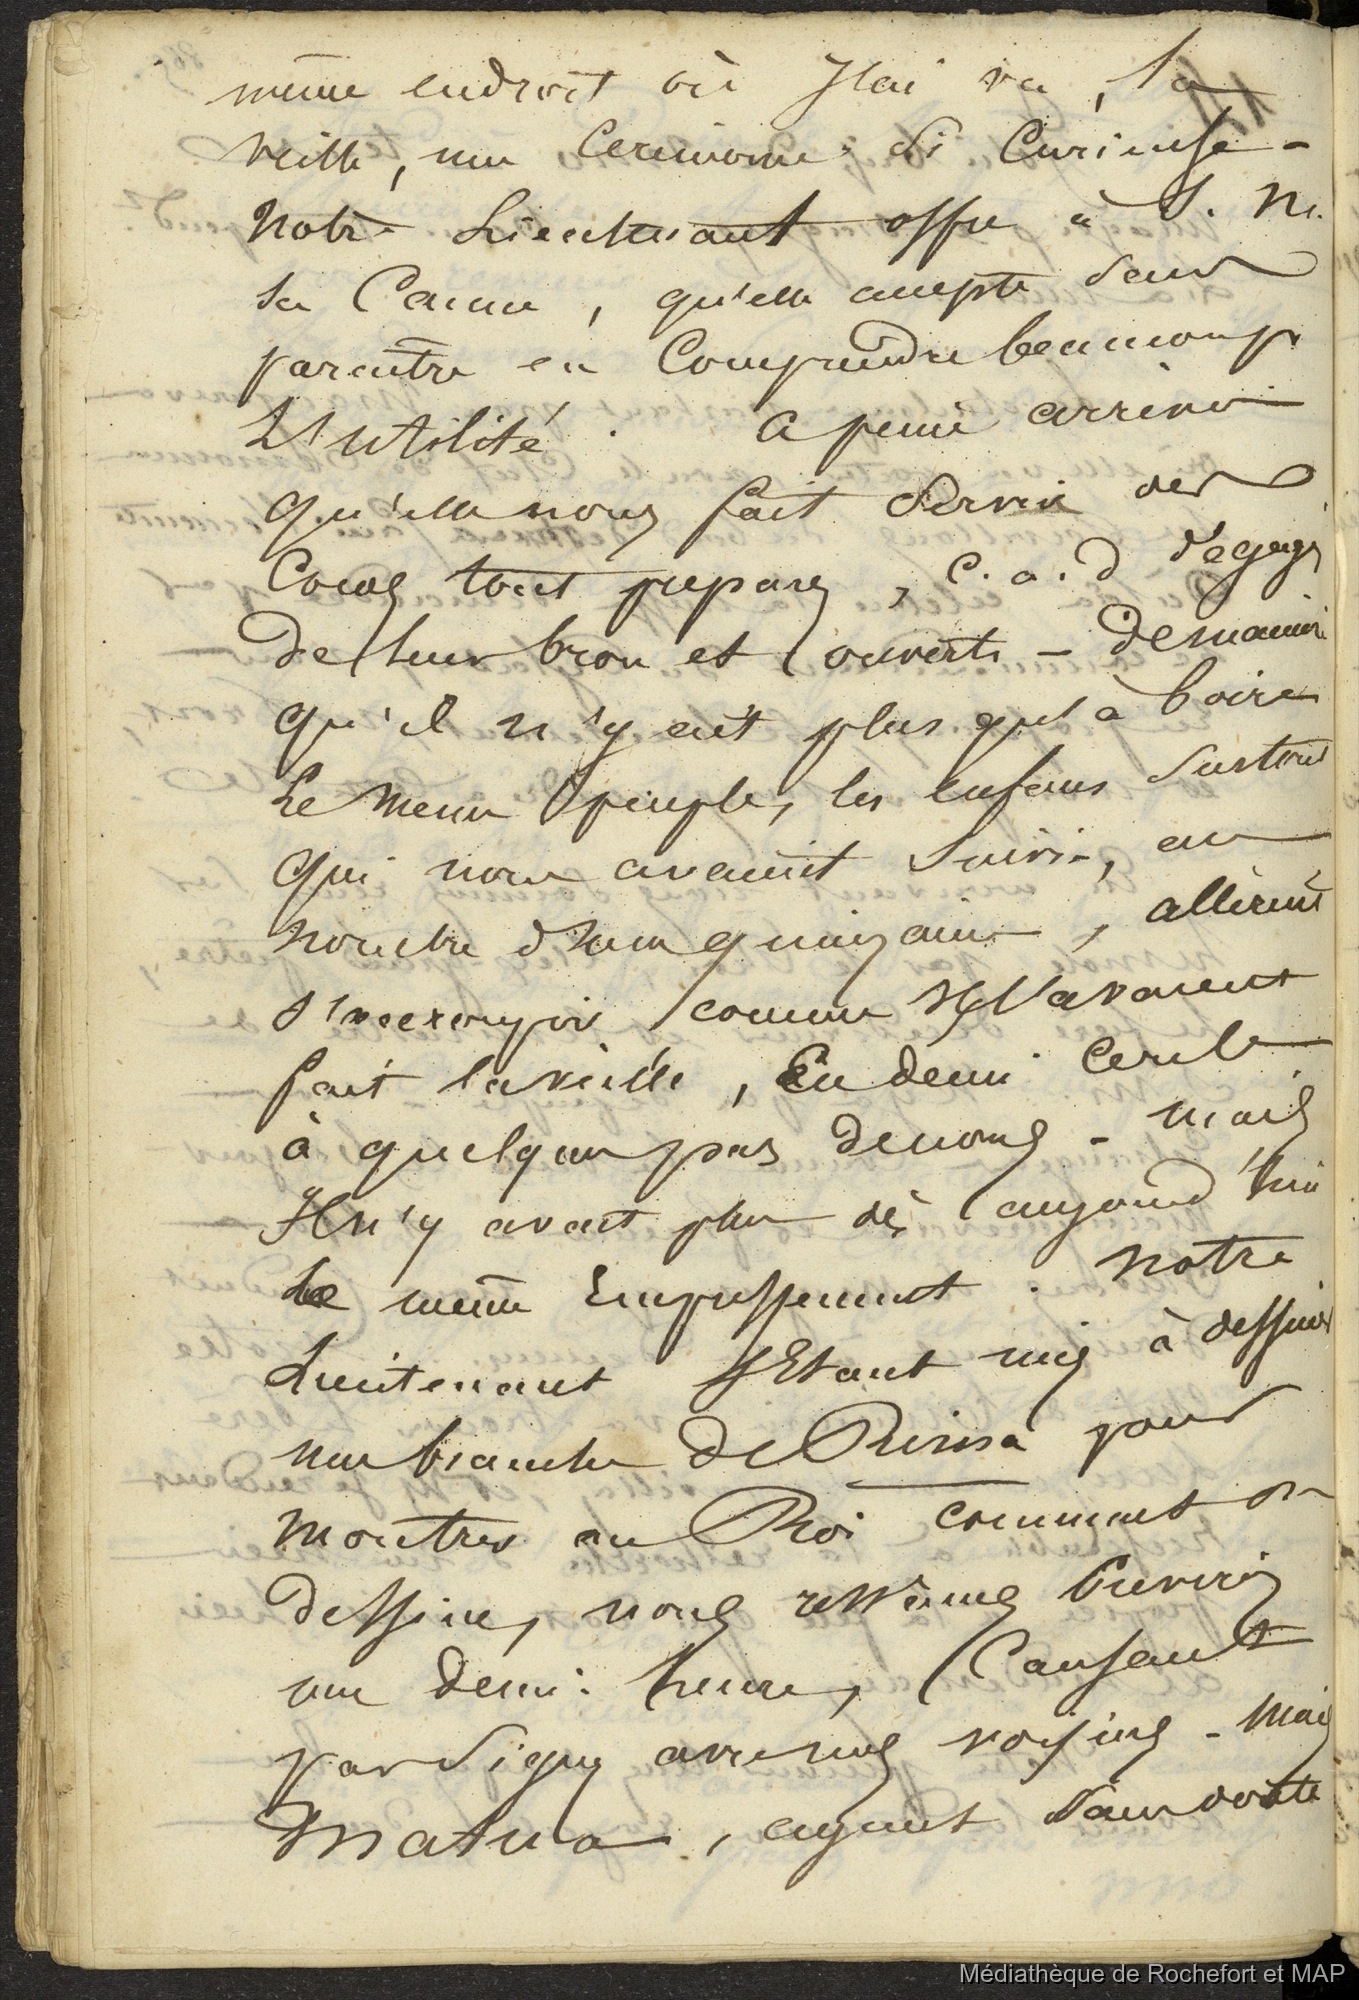 même endroit où J'ai vu, la
veille, une Ceremonie si Curieuse -
Notre Lieutenant offre à S. M.
sa Canne, qu'elle accepte sans
paraitre en Comprendre beaucoup
L'utilité. A peine arrivés
qu'elle nous fait servir des
Cocos tout preparés, c.a.d degagés
De leur brou et ouverts - De maniere
qu'il n'y ait plus qu'à boire
Le menu peuple, les enfans surtout
qui nous avaient suivis, au
nombre d'une quinzaine, allèrent
s'accroupir comme Ils l'avaient
fait la veille, En demi Cercle
à quelques pas de nous - Mais
Il n'y avait plus dès aujourd'hui
Le même Empressement. Notre
Lieutenant s'Etant mis à dessiner
une branche De Rima pour
Montrer au Roi comment on
Dessine, nous restâmes Environ
une demi-heure, Causant
par signes avec nos voisins - Mais
Matua, ayant sans doute
Médiathèque de Rochefort et MAP